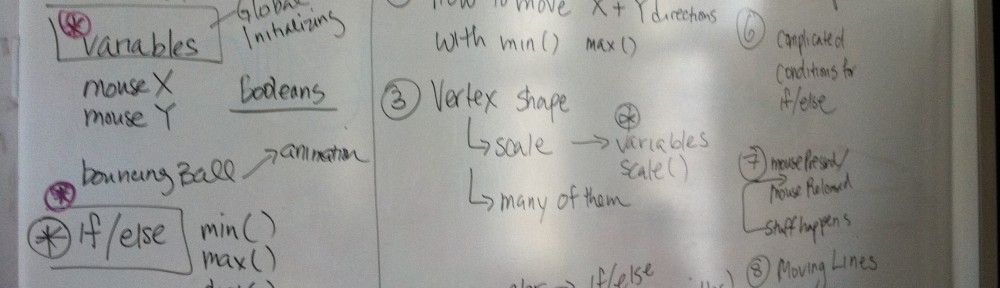 Variables
Global
Initializing
mouse X
mouse Y
booleans
bouncing Ball
animation
If/else
min()
max()
How to move X + Y directions
with min() max()
③ Vertex shape
scale
variables
scale()
many of them
if/else
⑥ Complicated
Conditions for
if/else
⑦ mousePressed/
Mouse Released
stuff happens
⑧ Moving Lines